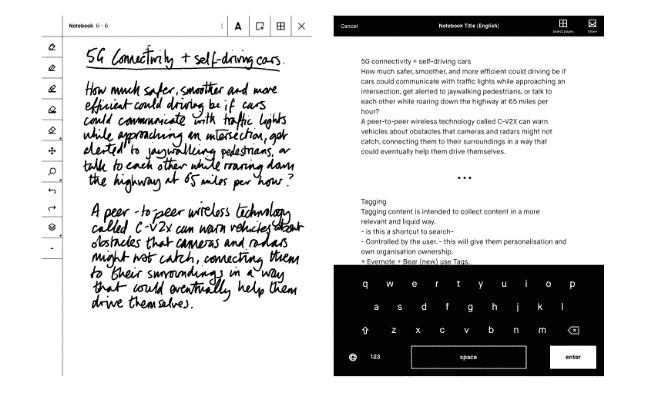 Notebook 6 - 6
A
5G Connectivity + self-driving cars.
How much safer, smoother and more
efficient could driving be if cars
could communicate with traffic lights
while approaching an intersection, got
alerted to jaywalking pedestrians, or
talk to each other while roaring down
the highway at 65 miles per hour?
A peer-to-peer wireless technology
called C-V2X can warn vehicles about
obstacles that cameras and radars
might not catch, connecting them
to their surroundings in a way
that could eventually help them
drive themselves.
Cancel
Notebook Title (English)
Select pages
More
5G connectivity + self-driving cars
How much safer, smoother, and more efficient could driving be if
cars could communicate with traffic lights while approaching an
intersection, get alerted to jaywalking pedestrians, or talk to
each other while roaring down the highway at 65 miles per
hour?
A peer-to-peer wireless technology called C-V2X can warn
vehicles about obstacles that cameras and radars might not
catch, connecting them to their surroundings in a way that
could eventually help them drive themselves.
Tagging
Tagging content is intended to collect content in a more
relevant and liquid way.
- is this a shortcut to search-
- Controlled by the user. - this will give them personalisation and
own organisation ownership.
+ Evernote + Bear (new) use Tags.
q w e r t y u i o p
a s d f g h j k l
z x c v b n m
123 space enter